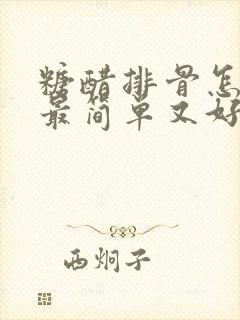 糖醋排骨怎
最简单又好
西炯子